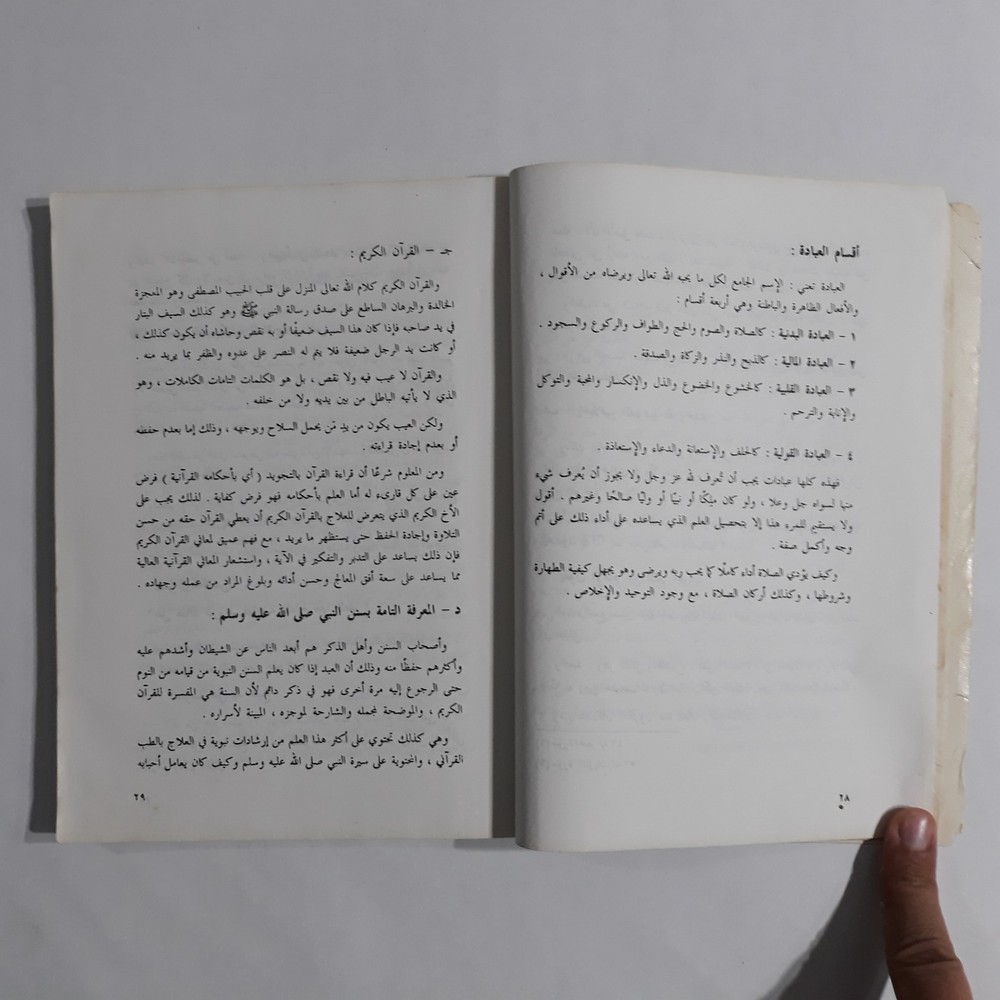 أقسام العبادة :
العبادة تعني : الإسم الجامع لكل ما يحبه الله تعالى ويرضاه من الأقوال ،
والأفعال الظاهرة والباطنة وهي أربعة أقسام :
١ – العبادة البدنية : كالصلاة والصوم والحج والطواف والركوع والسجود .
٢ – العبادة المالية : كالذبح والنذر والزكاة والصدقة .
٣ – العبادة القلبية : كالخشوع والخضوع والذل والإنكسار والمحبة والتوكل
والإنابة والترحم .
٤ – العبادة القولية : كالحلف والإستعانة والدعاء والإستعاذة .
فهذه كلها عبادات يجب أن تُعرف لله عز وجل ولا يجوز أن يُعرف شيء
منها لسواه جل وعلا ، ولو كان ملِكًا أو نبيًا أو وليًا صالحًا وغيرهم . أقول
ولا يستقيم للمرء هذا إلا بتحصيل العلم الذي يساعده على أداء ذلك على أتم
وجه وأكمل صفة .
وكيف يؤدي الصلاة أداء كاملًا كما يحب ربه ويرضى وهو يجهل كيفية الطهارة
وشروطها ، وكذلك أركان الصلاة ، مع وجود التوحيد والإخلاص .
٢٨
جـ – القرآن الكريم :
والقرآن الكريم كلام الله تعالى المنزل على قلب الحبيب المصطفى وهو المعجزة
الخالدة والبرهان الساطع على صدق رسالة النبي ﷺ وهو كذلك السيف البتار
في يد صاحبه فإذا كان هذا السيف ضعيفًا أو به نقص وحاشاه أن يكون كذلك ،
أو كانت يد الرجل ضعيفة فلا يتم له النصر على عدوه والظفر بما يريد منه .
والقرآن لا عيب فيه ولا نقص ، بل هو الكلمات التامات الكاملات ، وهو
الذي لا يأتيه الباطل من بين يديه ولا من خلفه .
ولكن العيب يكون من يدِ مَن يحمل السلاح ويوجهه ، وذلك إما بعدم حفظه
أو بعدم إجادة قراءته .
ومن المعلوم شرعًا أن قراءة القرآن بالتجويد ( أي بأحكامه القرآنية ) فرض
عين على كل قارىء له أما العلم بأحكامه فهو فرض كفاية . لذلك يجب على
الأخ الكريم الذي يتعرض للعلاج بالقرآن الكريم أن يعطي القرآن حقه من حسن
التلاوة وإجادة الحفظ حتى يستظهر ما يريد ، مع فهم عميق لمعاني القرآن الكريم
فإن ذلك يساعد على التدبر والتفكير في الآية ، واستشعار المعاني القرآنية العالية
مما يساعد على سعة أفق المعالج وحسن أدائه وبلوغ المراد من عمله وجهاده .
د – المعرفة التامة بسنن النبي صلى الله عليه وسلم :
وأصحاب السنن وأهل الذكر هم أبعد الناس عن الشيطان وأشدهم عليه
وأكثرهم حفظًا منه وذلك أن العبد إذا كان يعلم السنن النبوية من قيامه من النوم
حتى الرجوع إليه مرة أخرى فهو في ذكر دائم لأن السنة هي المفسرة للقرآن
الكريم ، والموضحة لمجمله والشارحة لموجزه ، المبينة لأسراره .
وهي كذلك تحتوي على أكثر هذا العلم من إرشادات نبوية في العلاج بالطب
القرآني ، والمحتوية على سيرة النبي صلى الله عليه وسلم وكيف كان يعامل أحبابه
٢٩